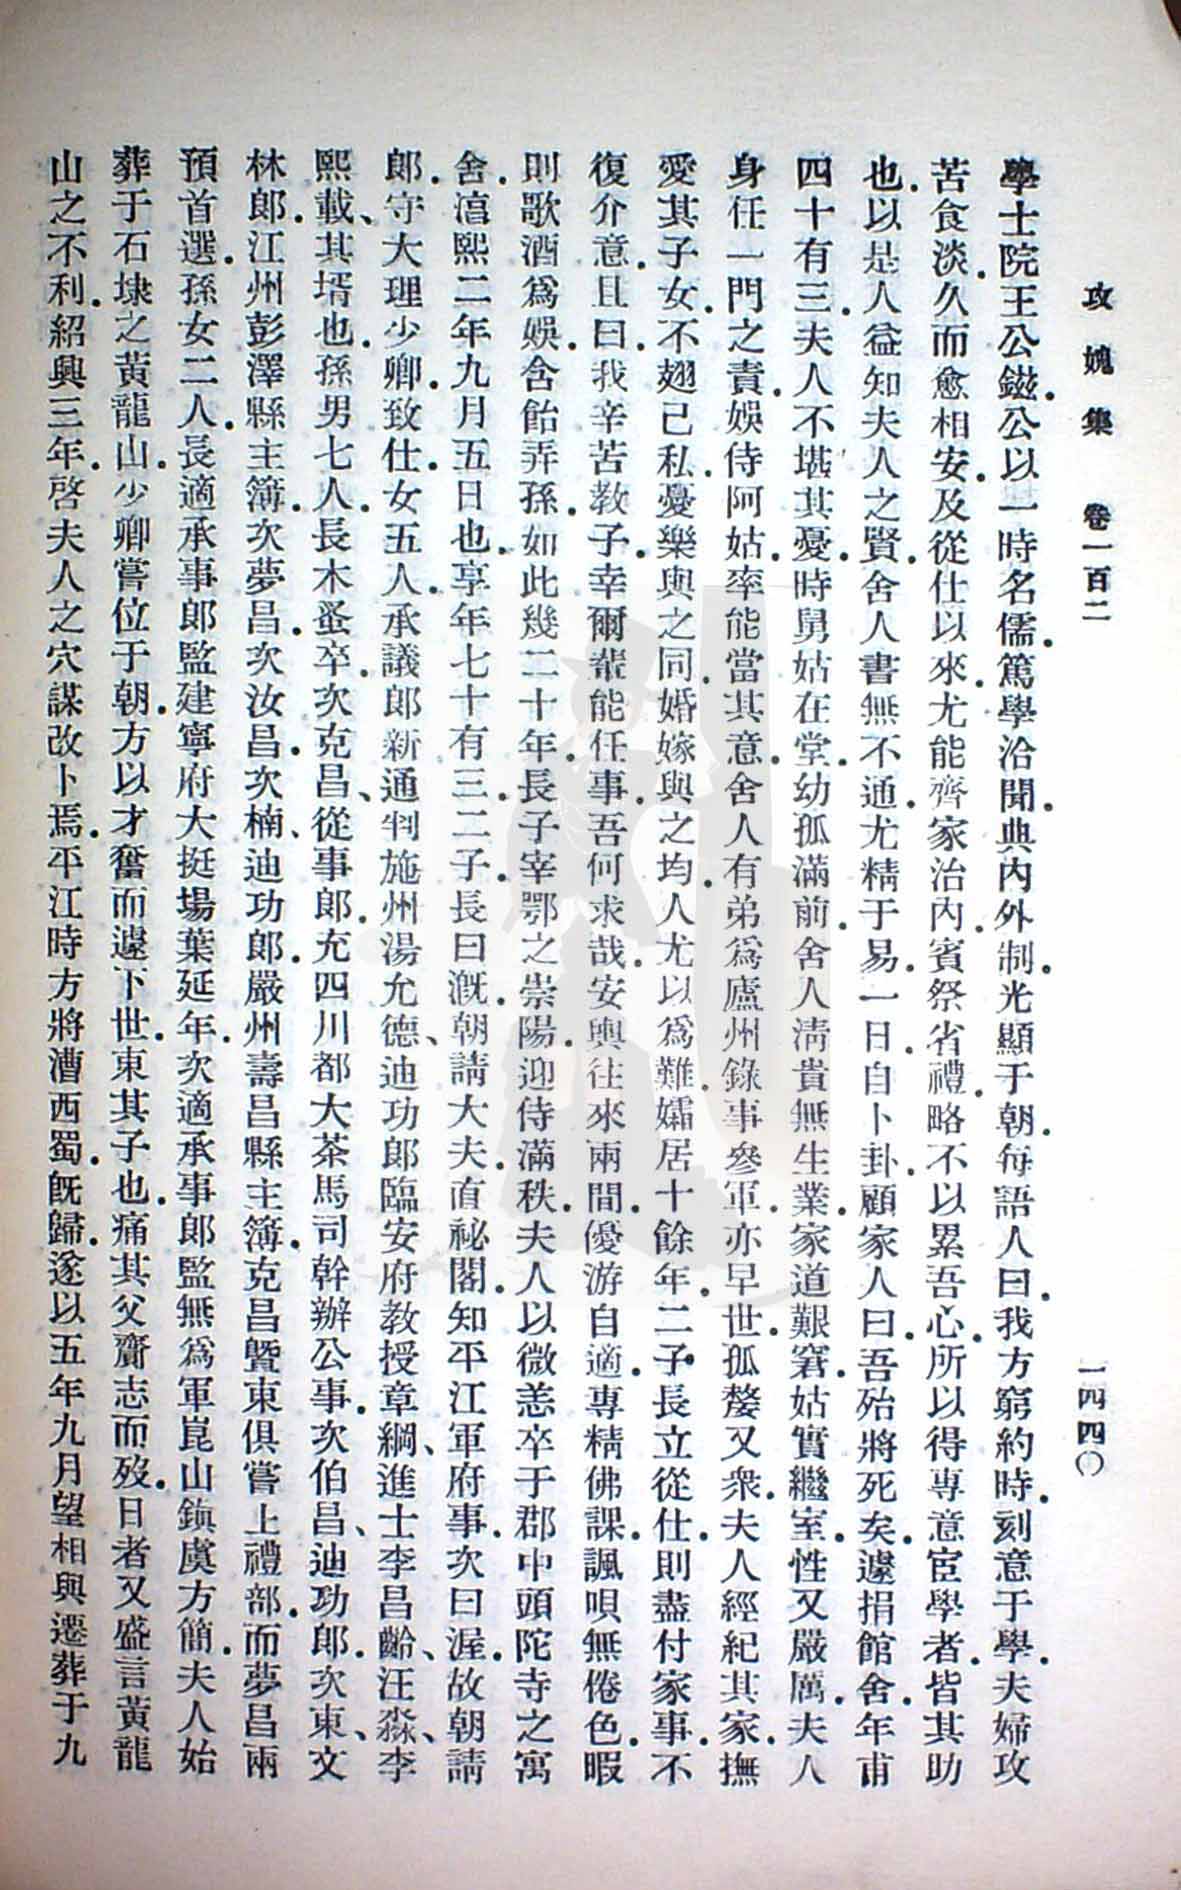 攻媿集　卷一百二　一四四〇
學士院王公鎡.公以一時名儒.篤學洽聞.典內外制.光顯于朝.每語人曰.我方窮約時.刻意于學.夫婦攻
苦食淡.久而愈相安.及從仕以來.尤能齊家治內.賓祭省禮.略不以累吾心.所以得專意宦學者.皆其助
也.以是人益知夫人之賢.舍人書無不通.尤精于易.一日自卜卦.顧家人曰.吾殆將死矣.遽捐館舍.年甫
四十有三.夫人不堪其憂.時舅姑在堂.幼孤滿前.舍人清貴無生業.家道艱窘.姑實繼室.性又嚴厲.夫人
身任一門之責.娛侍阿姑.率能當其意.舍人有弟爲廬州錄事參軍.亦早世.孤嫠又衆.夫人經紀其家.撫
愛其子女.不翅己私.憂樂與之同.婚嫁與之均.人尤以爲難.孀居十餘年.二子長立從仕.則盡付家事.不
復介意.且曰.我辛苦教子.幸爾輩能任事.吾何求哉.安輿往來兩間.優游自適.專精佛課.諷唄無倦色.暇
則歌酒爲娛.含飴弄孫.如此幾二十年.長子宰鄂之崇陽.迎侍滿秩.夫人以微恙卒于郡中頭陀寺之寓
舍.湻熙二年九月五日也.享年七十有三.二子.長曰溉.朝請大夫.直祕閣.知平江軍府事.次曰渥.故朝請
郎.守大理少卿.致仕.女五人.承議郎新通判施州湯允德、迪功郎臨安府教授章綱、進士李昌齡、汪淼、李
熙載、其壻也.孫男七人.長木蚤卒.次克昌、從事郎.充四川都大茶馬司幹辦公事.次伯昌、迪功郎.次東、文
林郎.江州彭澤縣主簿.次夢昌.次汝昌.次楠、迪功郎.嚴州壽昌縣主簿.克昌曁東俱嘗上禮部.而夢昌兩
預首選.孫女二人.長適承事郎監建寧府大挺場葉延年.次適承事郎監無爲軍崑山鎭虞方簡.夫人始
葬于石埭之黃龍山.少卿嘗位于朝.方以才奮而遽下世.東其子也.痛其父齎志而歿.日者又盛言黃龍
山之不利.紹興三年.啓夫人之穴謀改卜焉.平江時方將漕西蜀.旣歸.遂以五年九月望相與遷葬于九